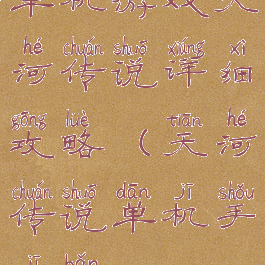 单机游戏天
hé chuán shuō xiáng xì
河传说详细
gōng lüè tiān hé
攻略（天河
chuán shuō dān jī shǒu
传说单机手
jī bǎn